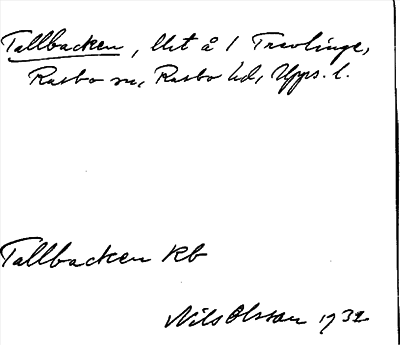 Tallbacken, lht å 1 Trevlinge,
Rasbo sn, Rasbo hd, Upps. l.
Tallbacken KB
Nils Olsson 1932